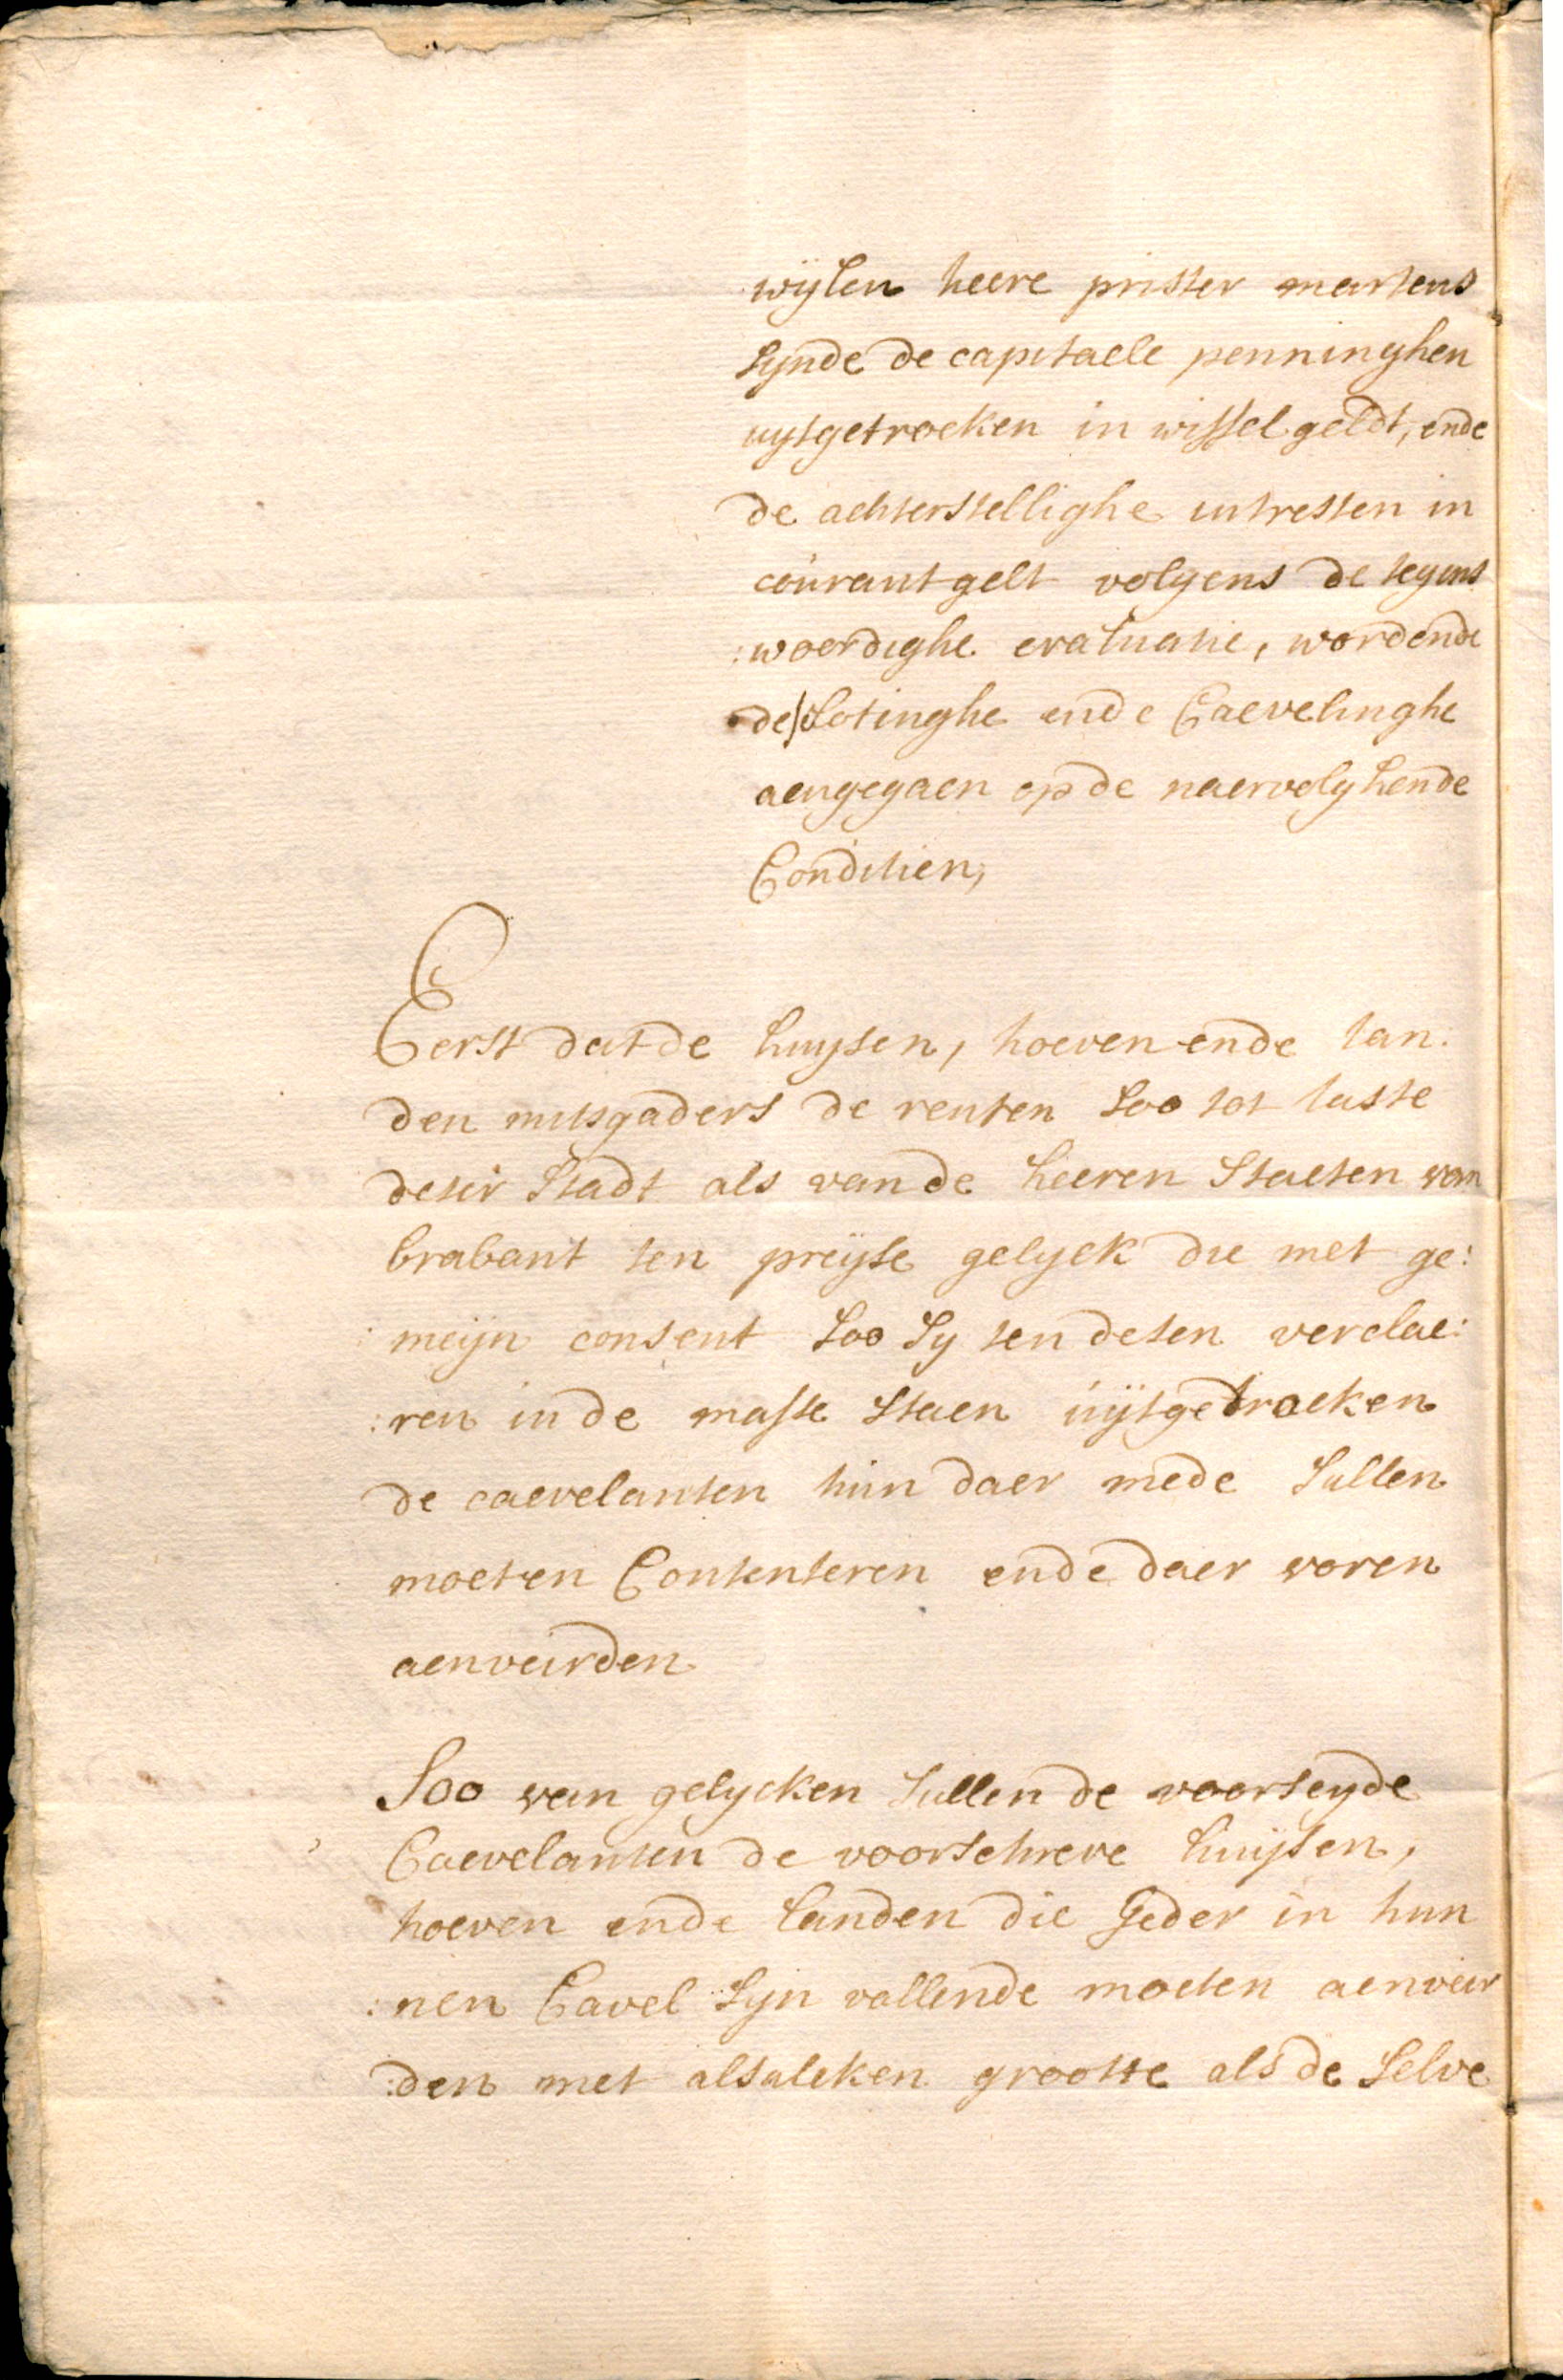 wijlen heere prister martens
sijnde de capitaele penninghen
uijtgetrocken in wisselgeldt, ende
de achterstellighe intresten in
courant gelt volgens de tegens
:woordighe evaluatie, wordende
de lotinghe ende Caevelinghe
aengegaen op de naervolghende
Conditien,
Eerst dat de huysen, hoeven ende lan:
den mitsgaders de renten soo tot laste
deser stadt als vande heeren Staeten van
brabant ten preijse gelijck die met ge:
meijn consent soo sy ten desen verclae:
:ren inde masse staen uijtgetrocken
de caevelanten hun daer mede sullen
moeten Contenteren ende daer voren
aenveirden
Soo van gelijcken sullen de voorseyde
Caevelanten de voorschreve huijsen,
hoeven ende landen die Jeder in hun
:nen Cavel sijn vallende moeten aenveir
:den met alsulcken grootte als de selve